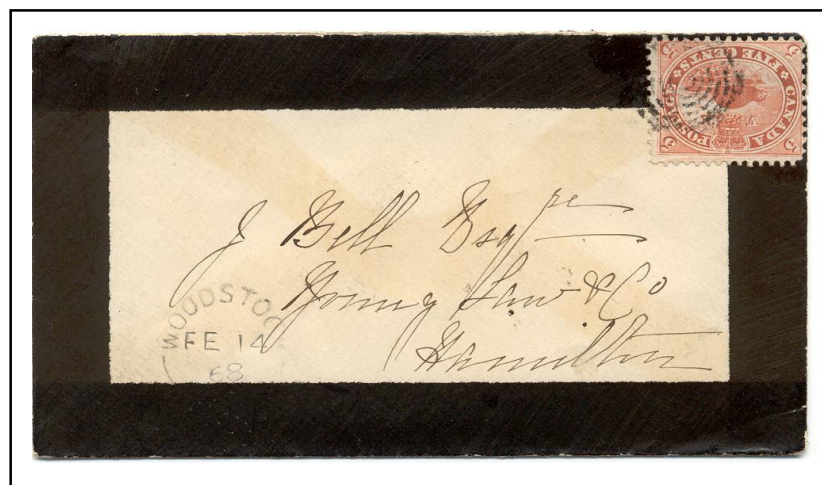 CANADA
POSTAGE
FIVE CENTS
5 5
5 5
J Bell Esqre
Young Law & Co
Hamilton
WOODSTOC
FE 14
68